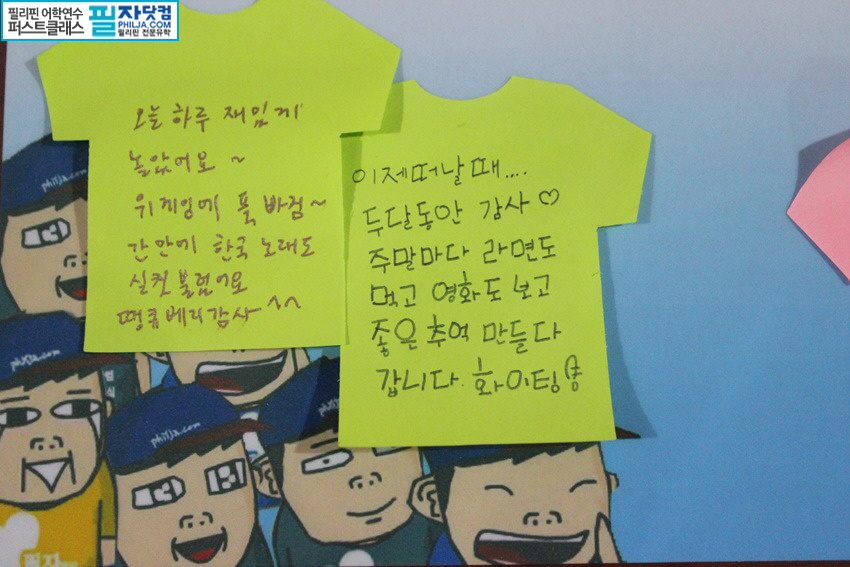 필리핀 어학연수
퍼스트클래스
필자닷컴
PHILJA.COM
필리핀 전문유학
오늘 하루 재밌게
놀았어요 ~
위게임에 푹 빠짐~
간만에 한국 노래도
실컷 불렀어요
땡큐베리감사^^
이제떠날때....
두달동안 감사♡
주말마다 라면도
먹고 영화도 보고
좋은추억 만들다
갑니다. 화이팅
philja.com
philja.com
philja.com
필자